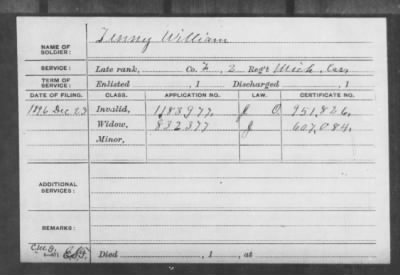 NAME OF SOLDIER: Tenny William
SERVICE: Late rank, Co. K, 2 Reg't Mich. Cav
TERM OF SERVICE: Enlisted , 1 Discharged , 1
DATE OF FILING. CLASS. APPLICATION NO. LAW. CERTIFICATE NO.
1896 Dec 23 Invalid, 1183977 J O. 951,826.
Widow, 832377 J 607,084.
Minor,
ADDITIONAL SERVICES:
REMARKS:
Died , 1 , at